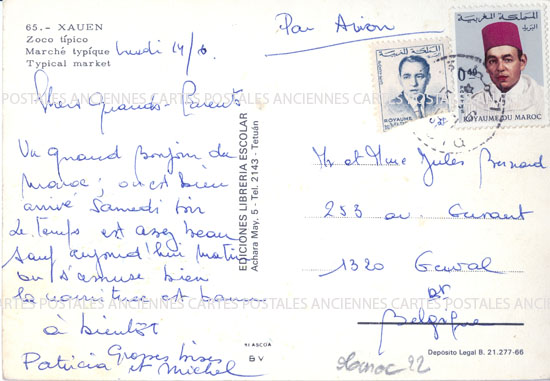 65.- XAUEN
Zoco típico
Marché typíque
Typical market
Lundi 14/6
Par Avion
Chers Grands-Parents
Un grand bonjour du
Maroc ; on est bien
arrivé Samedi soir
Le temps est assez beau
sauf aujourd'hui matin
on s'amuse bien
la nourriture est bonne
à bientôt
Grosses bises
Patricia et Michel
EDICIONES LIBRERIA ESCOLAR
Achara May, 5 - Tel. 2143 - Tetuán
FLASCOA
B V
المملكة المغربية
ROYAUME
المملكة المغربية
البريد
0,40
ROYAUME DU MAROC
Mr et Mme Jules Bernard
253 av.
1320 Genval
Belgique
Depósito Legal B. 21.277-66
Maroc 22
POSTALES ANCIENNES CARTES POSTALES ANCIENNES CARTES POSTALES ANCIENNES
CARTES POSTALES ANCIENNES CARTES POSTALES ANCIENNES CARTES POSTALES